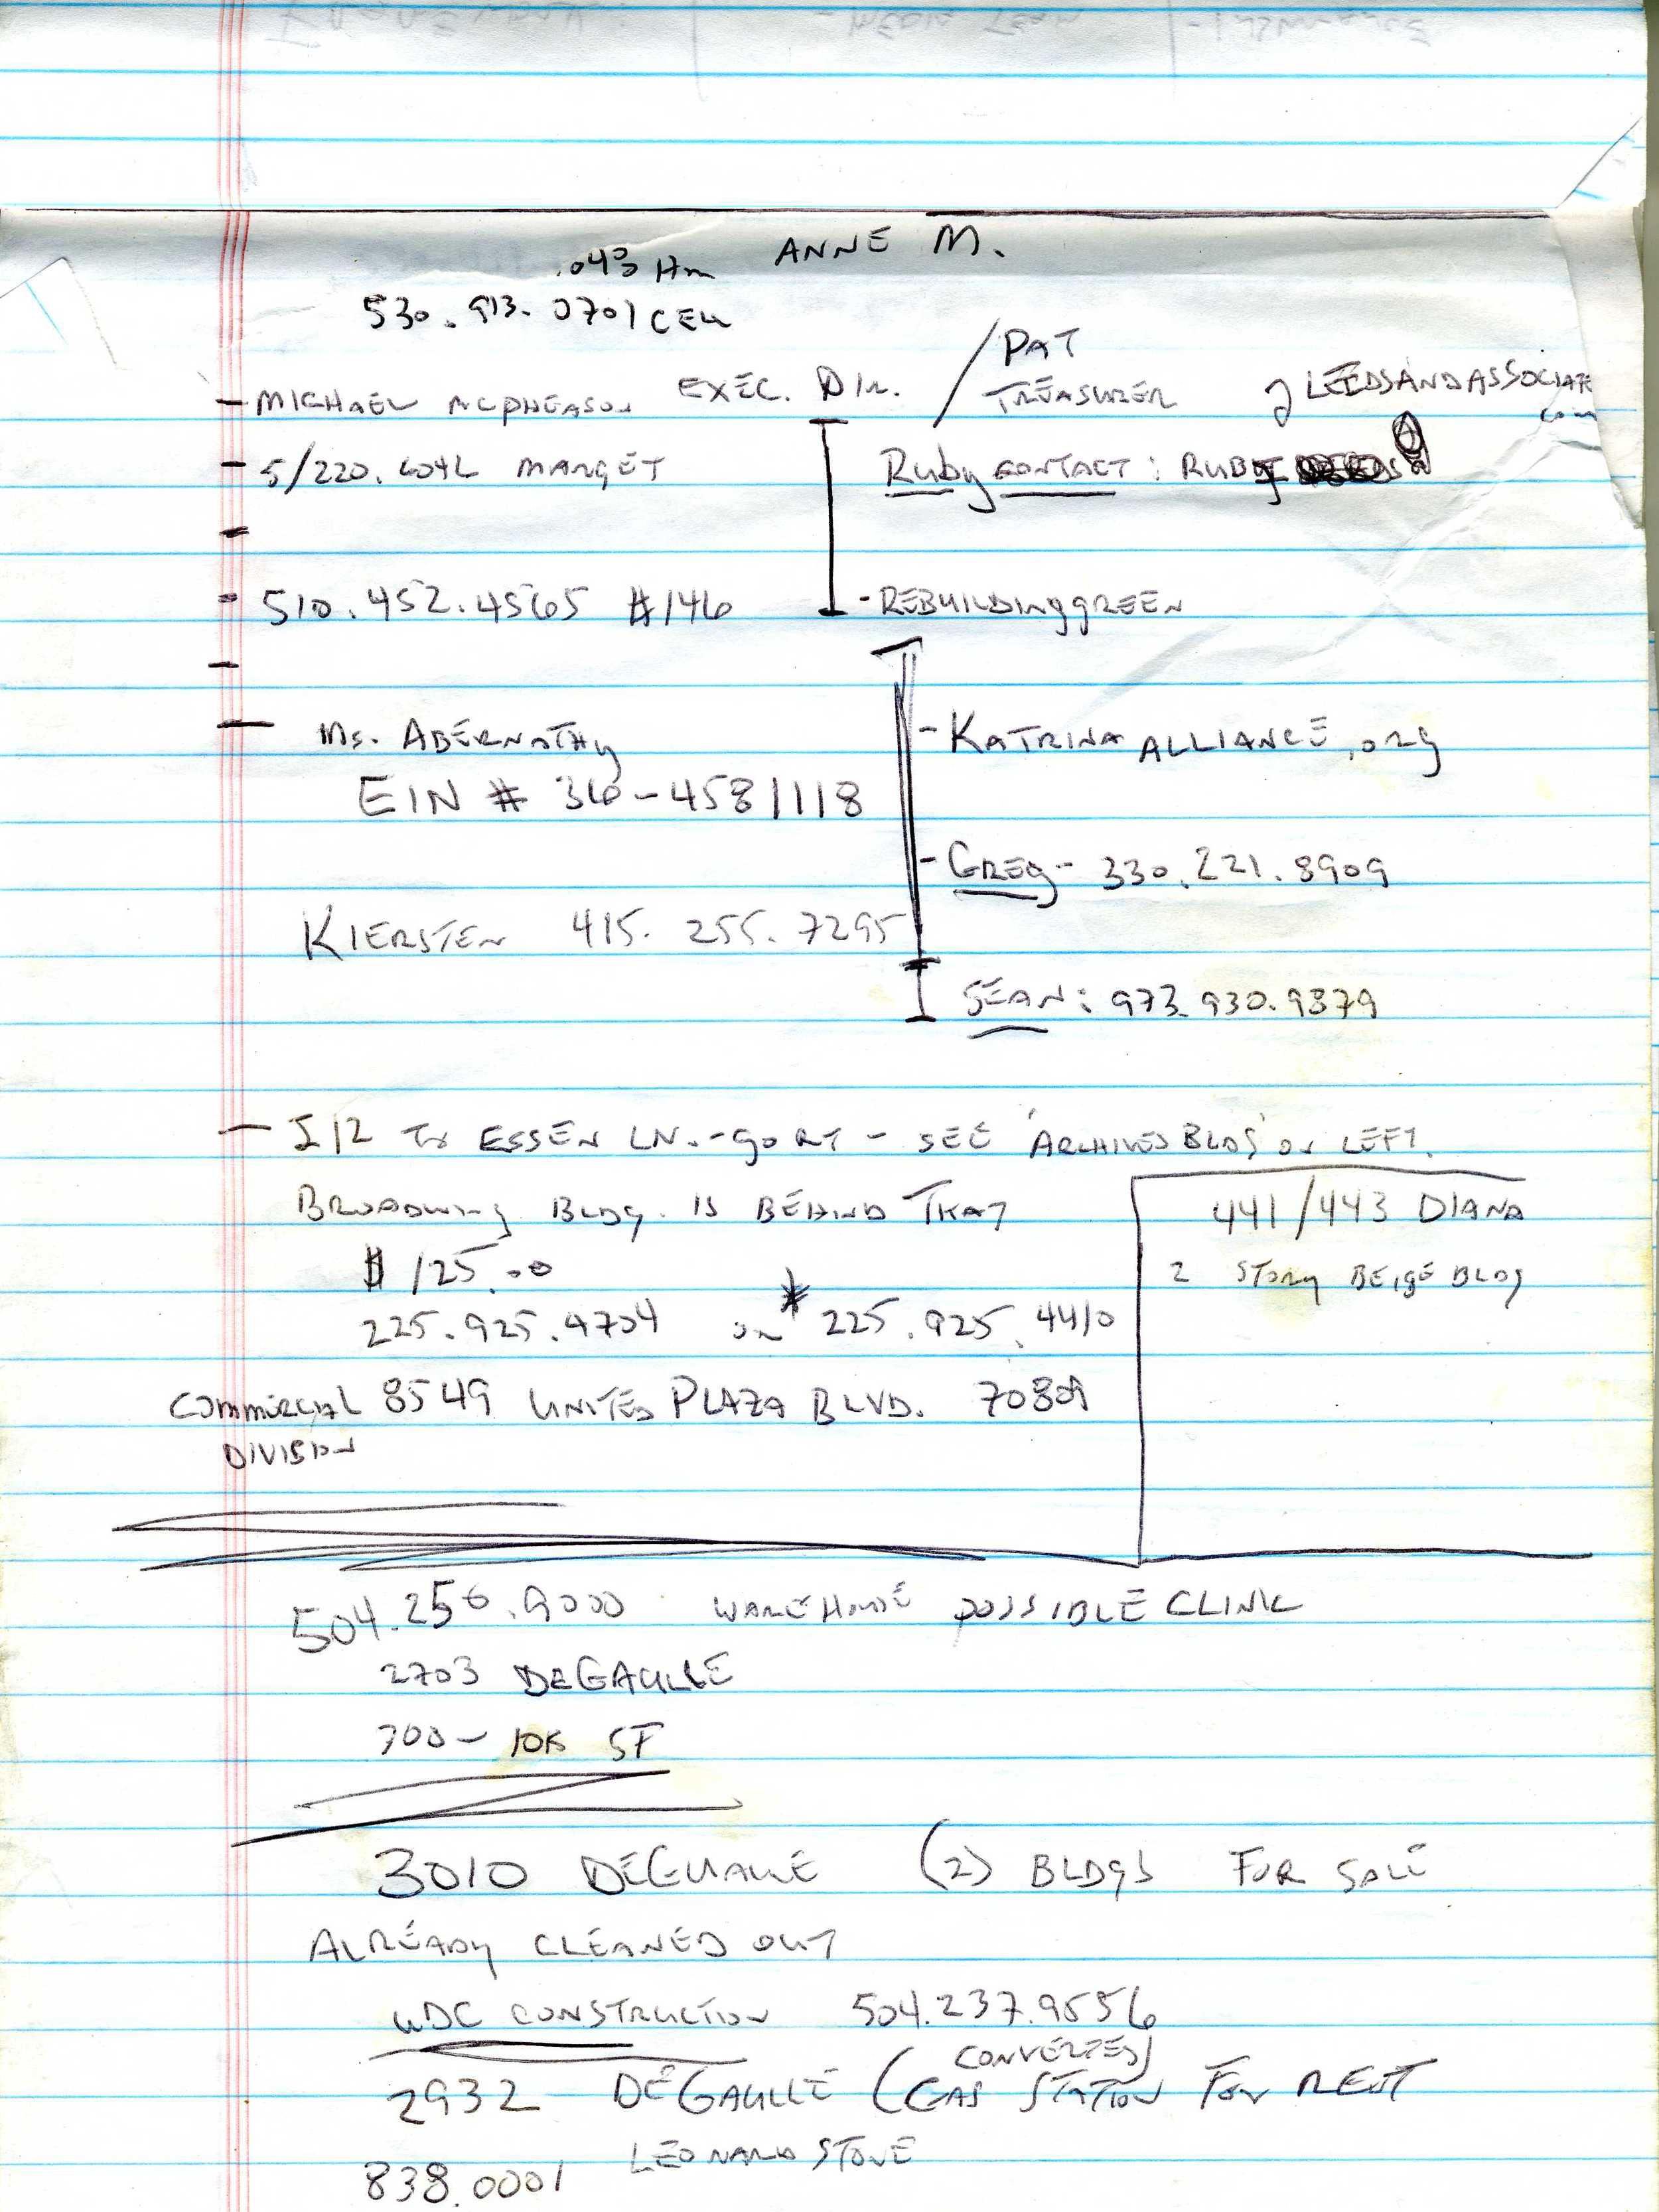 ANNE M.
.043 Hm
530.913.0701 CELL
PAT
- MICHAEL MCPHEARSON EXEC. DIR. / TREASURER
@LEEDSANDASSOCIATE
com
- 5/220. MARGET
Ruby CONTACT: RUBY
- 510.452.4565 #146
- REBUILDINGGREEN
Ms. ABERNATHY
- KATRINA ALLIANCE.org
EIN # 36-4581118
- GREG - 330.221.8909
KIERSTEN 415.255.7295
SEAN: 973.930.9379
- I 12 TO ESSEN LN. - GO RT - SEE 'ARCHIVES BLDG' ON LEFT.
BROADWING BLDG. IS BEHIND THAT
441/443 DIANA
$125.00
2 STORY BEIGE BLDG
225.925.4704 OR * 225.925.4410
COMMERCIAL 8549 UNITED PLAZA BLVD. 70809
DIVISION
504.256.9000 WAREHOUSE POSSIBLE CLINIC
2703 DEGAULLE
700 - 10K SF
3010 DEGUALLE (2) BLDGS FOR SALE
ALREADY CLEANED OUT
WDC CONSTRUCTION 504.237.9556
CONVERTED)
2932 DEGAULLE (GAS STATION FOR RENT
LEONARD STOVE
838.0001